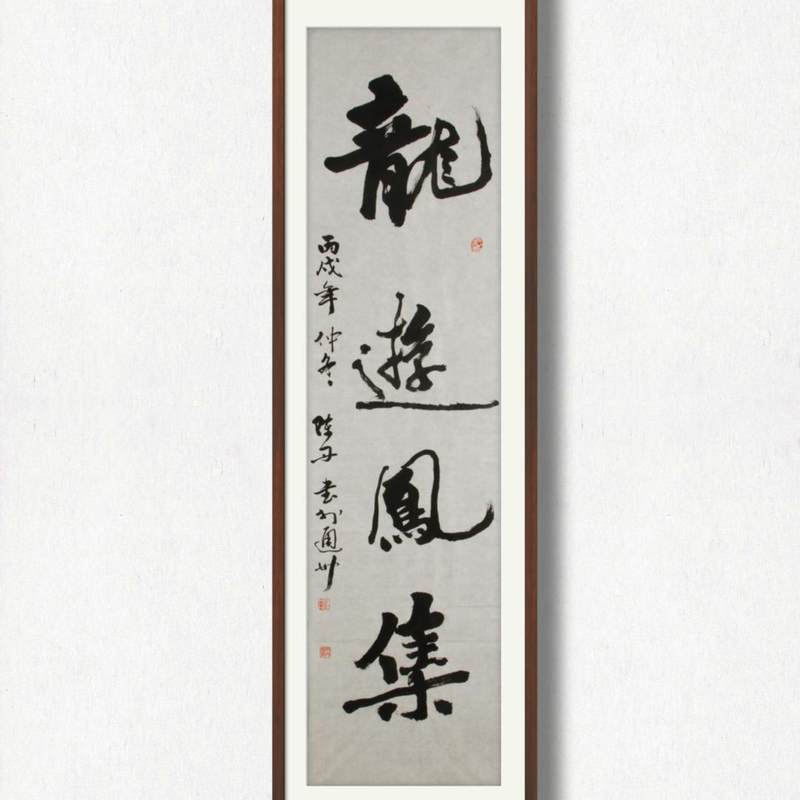 龍遊鳳集
丙戌年仲冬陈丹书於通州